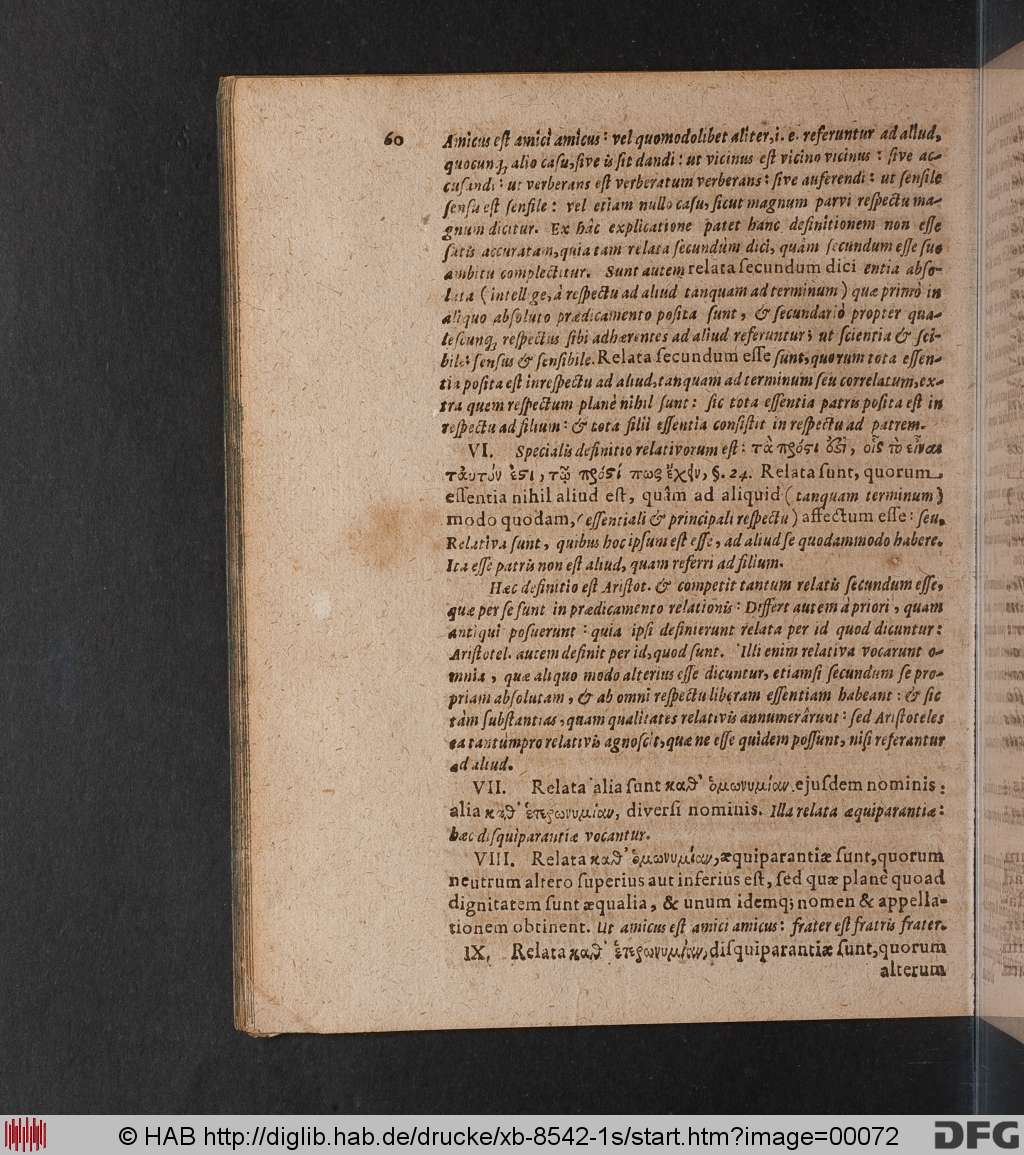 60
Amicus eſt amici amicus: vel quomodolibet aliter, i. e. referuntur ad aliud,
quocunq; alio caſu, ſive is ſit dandi: ut vicinus eſt vicino vicinus: ſive ac-
cuſandi: ut verberans eſt verberatum verberans: ſive auferendi: ut ſenſile
ſenſu eſt ſenſile: vel etiam nullo caſu, ſicut magnum parvi reſpectu ma-
gnum dicitur. Ex hâc explicatione patet hanc definitionem non eſſe
ſatis accuratam, quia tam relata ſecundùm dici, quàm ſecundum eſſe ſuo
ambitu complectitur. Sunt autem relata ſecundum dici entia abſo-
luta (intellige, à reſpectu ad aliud tanquam ad terminum) quæ primò in
aliquo abſoluto prædicamento poſita ſunt, & ſecundariò propter qua-
leſcunq; reſpectus ſibi adhærentes ad aliud referuntur; ut ſcientia & ſci-
bile: ſenſus & ſenſibile. Relata ſecundum eſſe ſunt, quorum tota eſſen-
tia poſita eſt in reſpectu ad aliud, tanquam ad terminum ſeu correlatum, ex-
tra quem reſpectum planè nihil ſunt: ſic tota eſſentia patris poſita eſt in
reſpectu ad filium: & tota filii eſſentia conſiſtit in reſpectu ad patrem.
VI. Specialis definitio relativorum eſt: τὰ πρόςτι ὅϛι, οἷς τὸ εἶναι
ταυτόν ἐϛι, τῷ πρόϛί πως ἔχειν, §. 24. Relata ſunt, quorum
eſſentia nihil aliud eſt, quâm ad aliquid (tanquam terminum)
modo quodam, (eſſentiali & principali reſpectu) affectum eſſe: ſeu,
Relativa ſunt, quibus hoc ipſum eſt eſſe, ad aliud ſe quodammodo habere.
Ita eſſe patris non eſt aliud, quam referri ad filium.
Hæc definitio eſt Ariſtot. & competit tantum relatis ſecundum eſſe,
quæ per ſe ſunt in prædicamento relationis: Differt autem à priori, quam
antiqui poſuerunt: quia ipſi definierunt relata per id quod dicuntur:
Ariſtotel. autem definit per id, quod ſunt. Illi enim relativa vocarunt o-
mnia, quæ aliquo modo alterius eſſe dicuntur, etiamſi ſecundum ſe pro-
priam abſolutam, & ab omni reſpectu liberam eſſentiam habeant: & ſic
tàm ſubſtantias, quam qualitates relativis annumerârunt: ſed Ariſtoteles
ea tantùm pro relativis agnoſcit, quæ ne eſſe quidem poſſunt, niſi referantur
ad aliud.
VII. Relata alia ſunt καθ' ὁμωνυμίαν, ejuſdem nominis:
alia καθ' ἑτερωνυμίαν, diverſi nominis. Illa relata æquiparantiæ:
hæc diſquiparantiæ vocantur.
VIII. Relata καθ' ὁμωνυμίαν, æquiparantiæ ſunt, quorum
neutrum altero ſuperius aut inferius eſt, ſed quæ planè quoad
dignitatem ſunt æqualia, & unum idemq; nomen & appella-
tionem obtinent. Ut amicus eſt amici amicus: frater eſt fratris frater.
IX. Relata καθ' ἑτερωνυμίαν, diſquiparantiæ ſunt, quorum
alterum
© HAB http://diglib.hab.de/drucke/xb-8542-1s/start.htm?image=00072
DFG